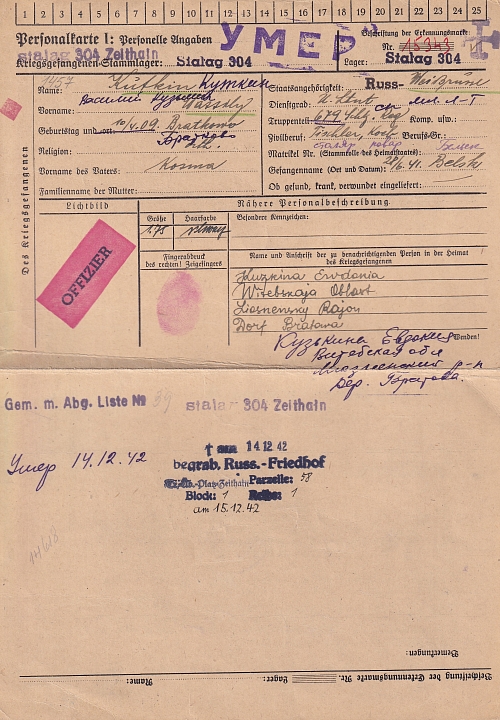 1 2 3 4 5 6 7 8 9 10 11 12 13 14 15 16 17 18 19 20 21 22 23 24 25
Personalkarte I: Personelle Angaben
УМЕР
Beschriftung der Erkennungsmarke
Stalag 304 Zeithain
Nr. 15343
Kriegsgefangenen-Stammlager: Stalag 304
Lager: Stalag 304
Des Kriegsgefangenen
1457
Name: Kuskin Куткин
Василий Кузьмич
Vorname: Wassely
Geburtstag und -ort 10/4.09. Bratkowo
Братково
Religion:
Vorname des Vaters: Kosma
Familienname der Mutter:
Staatsangehörigkeit: Russ- Weißruße
Dienstgrad: U. Ltnt мл. Л-т
Truppenteil: 679 Schtz. Reg Komp. usw.:
Zivilberuf: Tischler, Koch Berufs-Gr.:
столяр повар
Matrikel Nr. (Stammrolle des Heimatstaates):
Белск
Gefangennahme (Ort und Datum): 28/6.41. Belsk
Ob gesund, krank, verwundet eingeliefert:
Lichtbild
Nähere Personalbeschreibung
OFFIZIER
Größe Haarfarbe
1.75 schwarz
Besondere Kennzeichen:
Fingerabdruck
des rechten! Zeigefingers
Name und Anschrift der zu benachrichtigenden Person in der Heimat
des Kriegsgefangenen
Kuzkina Ewdonia
Witebskaja Oblast
Liosnensky Rajon
Dorf Bratawa
Кузькина Евдокия
Wenden!
Витебская обл
Лиозненский р-н
Дер. Братова
Gem. m. Abg. Liste № 39 stalag 304 Zeithain
Умер 14.12.42
† am 14.12.42
begrab. Russ.-Friedhof
-Platz-Zeithain Parzelle: 58
Block: 1 Reihe: 1
am 15.12.42
Bemerkungen:
Beschriftung der Erkennungsmarke Nr. Lager:
Name: